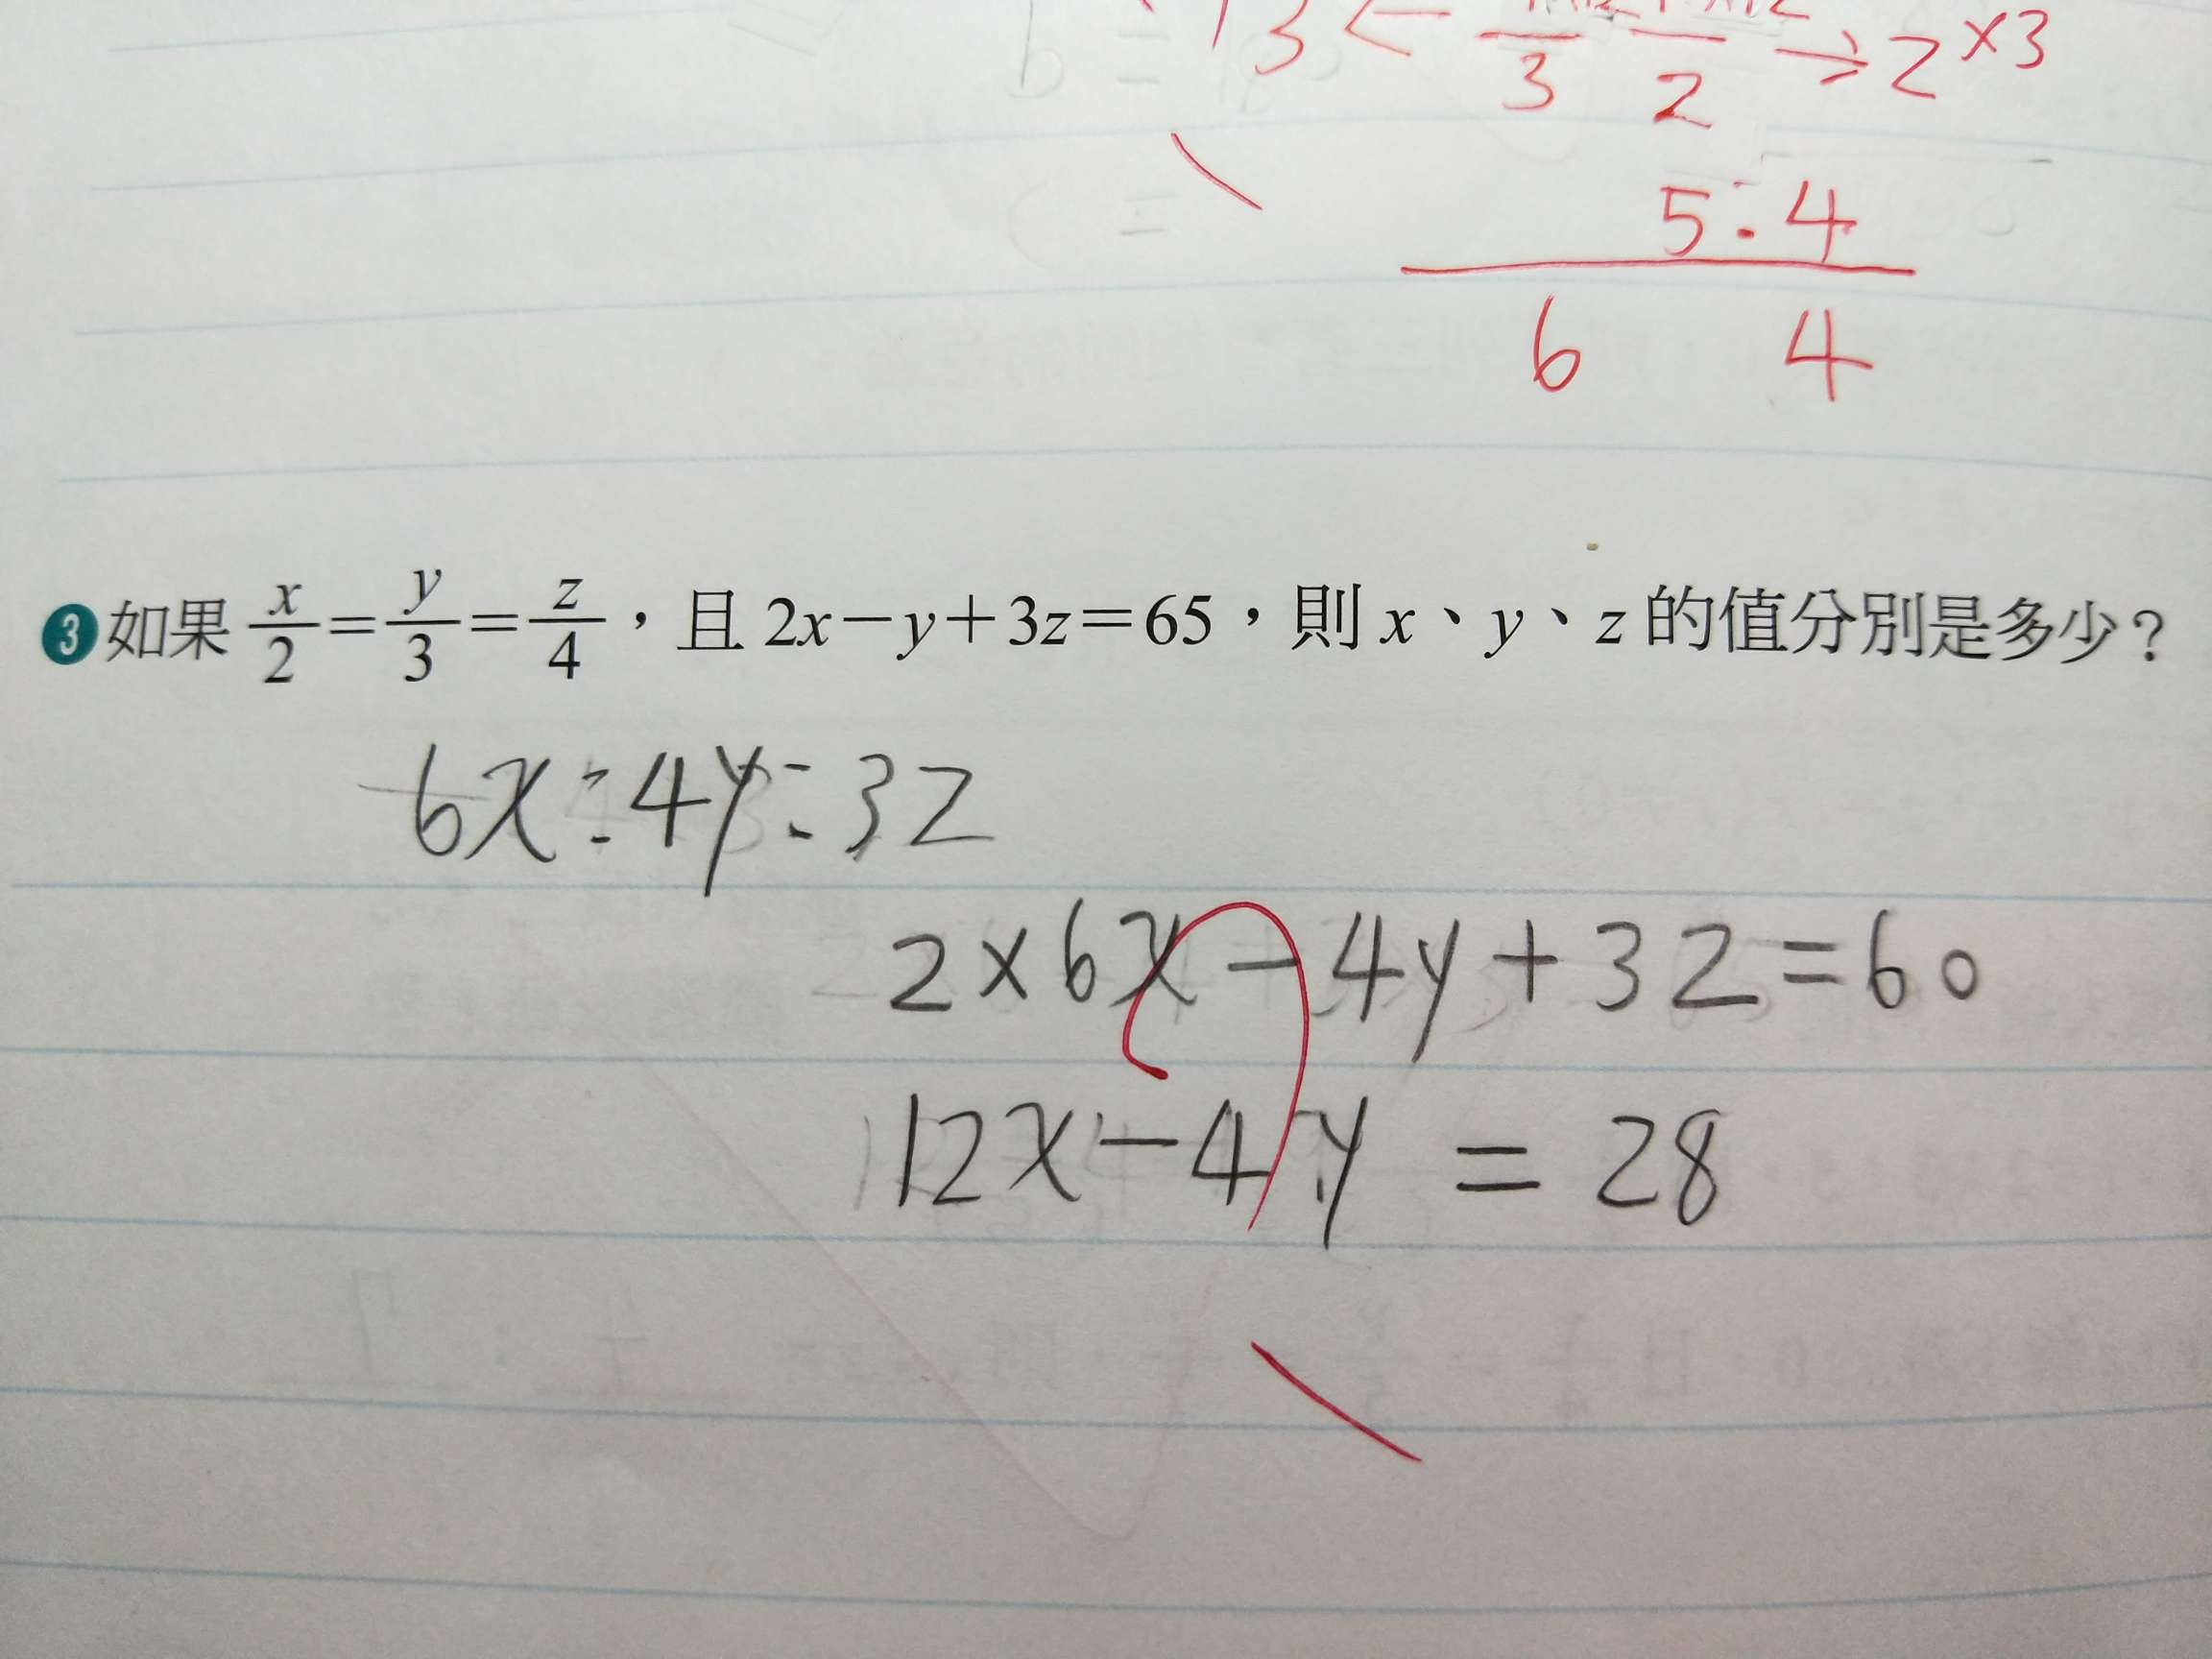 13 ← 3 2 → 2 ×3
5:4
6 4
❸如果 x/2 = y/3 = z/4，且 2x－y＋3z＝65，則 x、y、z 的值分別是多少？
6x:4y:3z
2×6x-4y+3z=60
12x-4y = 28